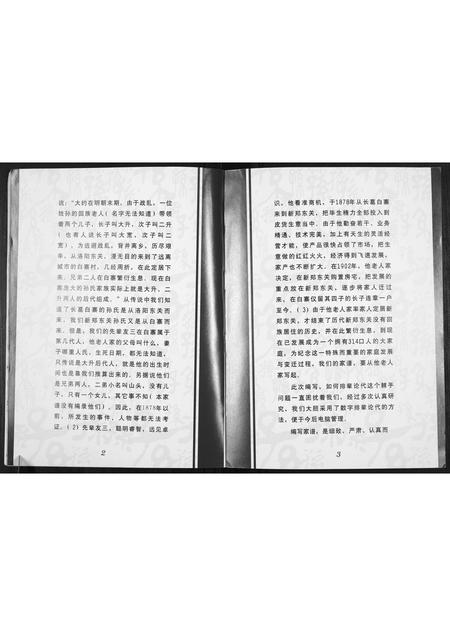 说："大约在明朝末期，由于战乱，一位
姓孙的回族老人（名字无法知道）带领
着两个儿子，长子叫大升，次子叫二升
（也有人说长子叫大宽，次子叫二
宽），为逃避战乱，背井离乡，历尽艰
辛，从洛阳东关，漫无目的来到了远离
城市的白寨村，几经周折，在此定居下
来，兄弟二人在白寨繁衍生息，现在白
寨庞大的孙氏家族实际上就是大升、二
升两人的后代组成。"从传说中我们知
道了长葛白寨的孙氏是从洛阳东关而
来，我们新郑东关孙氏又是从白寨而
来。但是，我们的先辈友三在白寨属于
第几代人，他老人家的父母叫什么，妻
子哪里人氏，生死日期，都无法知道，
只传说是大升后代人，就是他的出生时
间也是靠我们推算出来的。另据说他们
是兄弟两人，二弟小名叫山头，没有儿
子，只有一个女儿，其它事不知（本家
谱没有编录他们）。因此，在1878年以
前，所发生的事件、人物等都无法考
证。（2）先辈友三，聪明睿智，远见卓
2
识，他看准商机，于1878年从长葛白寨
来到新郑东关，把毕生精力全部投入到
皮货生意当中。由于他勤奋若干，业务
精通，技术完美，加上有天生的灵活经
营才能，使产品很快占领了市场，把生
意做的红红火火，经济得到飞速发展，
家产也不断扩大。在1902年，他老人家
决定，在新郑东关购置房宅，把发展的
重点放在新郑东关，逐步将家人迁过
来，在白寨仅留其四子的长子连章一户
至今。（3）由于他老人家率家人定居新
郑东关，才结束了历代新郑东关没有回
族居住的历史，并在此繁衍生息，到现
在已发展成为一个拥有314口人的大家
庭，为纪念这一特殊而重要的家庭发展
与变迁过程，我们的家谱，要从他老人
家写起。
此次编写，如何排辈论代这个棘手
问题一直困扰着我们，经过多次认真研
究，我们大胆采用了数字排辈论代的方
法，便于今后电脑管理。
编写家谱，是细致、严肃、认真而
3